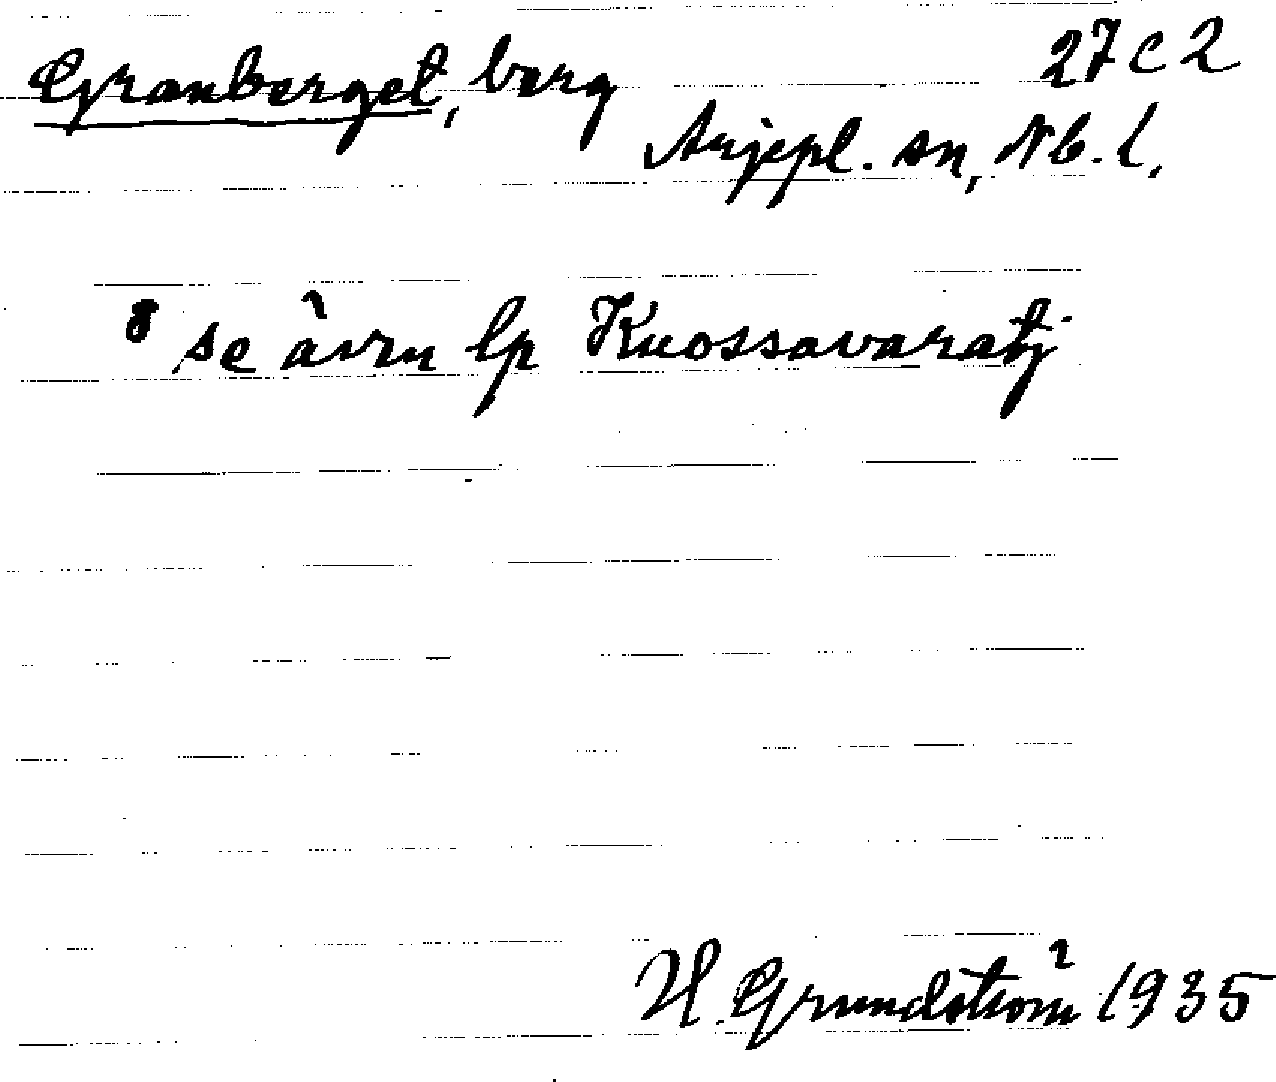 Granberget, berg 27 C 2
Arjepl. sn, Nb. l.
se även lp Kuossavaratj
H. Grundström 1935